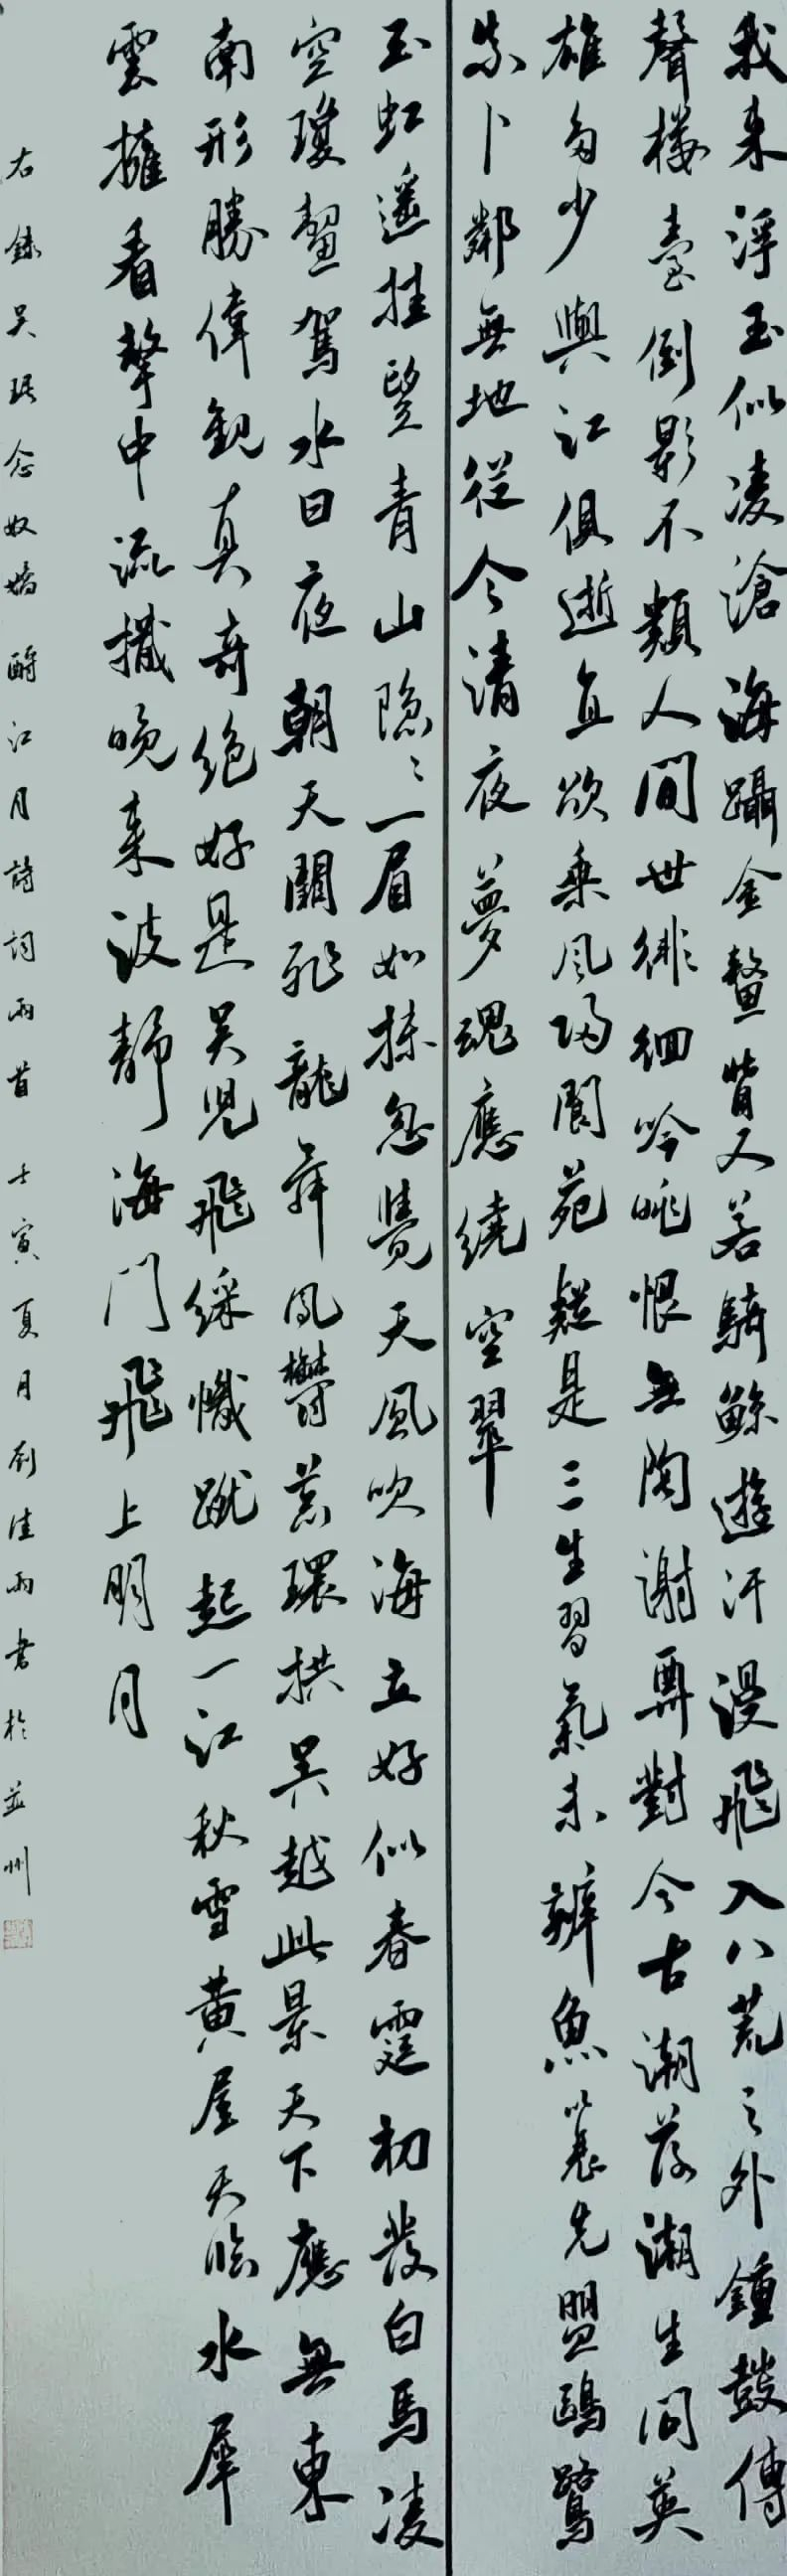 我来浮玉似凌滄海躡金鳌背又若騎鯨遊汗漫飛入八荒之外鍾鼓傳
聲樓臺倒影不類人間世徘徊吟眺恨無陶謝對今古潮落潮生問英
雄多少與江俱逝直欲乘風归閬苑疑是三生習氣未辦魚蓑先盟鷗鷺
奈卜鄰無地從今清夜夢魂應繞空翠
玉虹遥挂望青山隐〻一眉如抹忽覺天風吹海立好似春霆初發白馬凌
空瓊鼇駕水日夜朝天闕飛龍舞鳳鬱葱環拱吳越此景天下應無東
南形勝偉觀真奇絕好是吳兒飛綵幟蹴起一江秋雪黄屋天临水犀
雲擁看擊中流檝晚来波靜海門飛上明月
右錄吴琚念奴嬌酹江月詩詞兩首 壬寅夏月刘佳雨書於並州